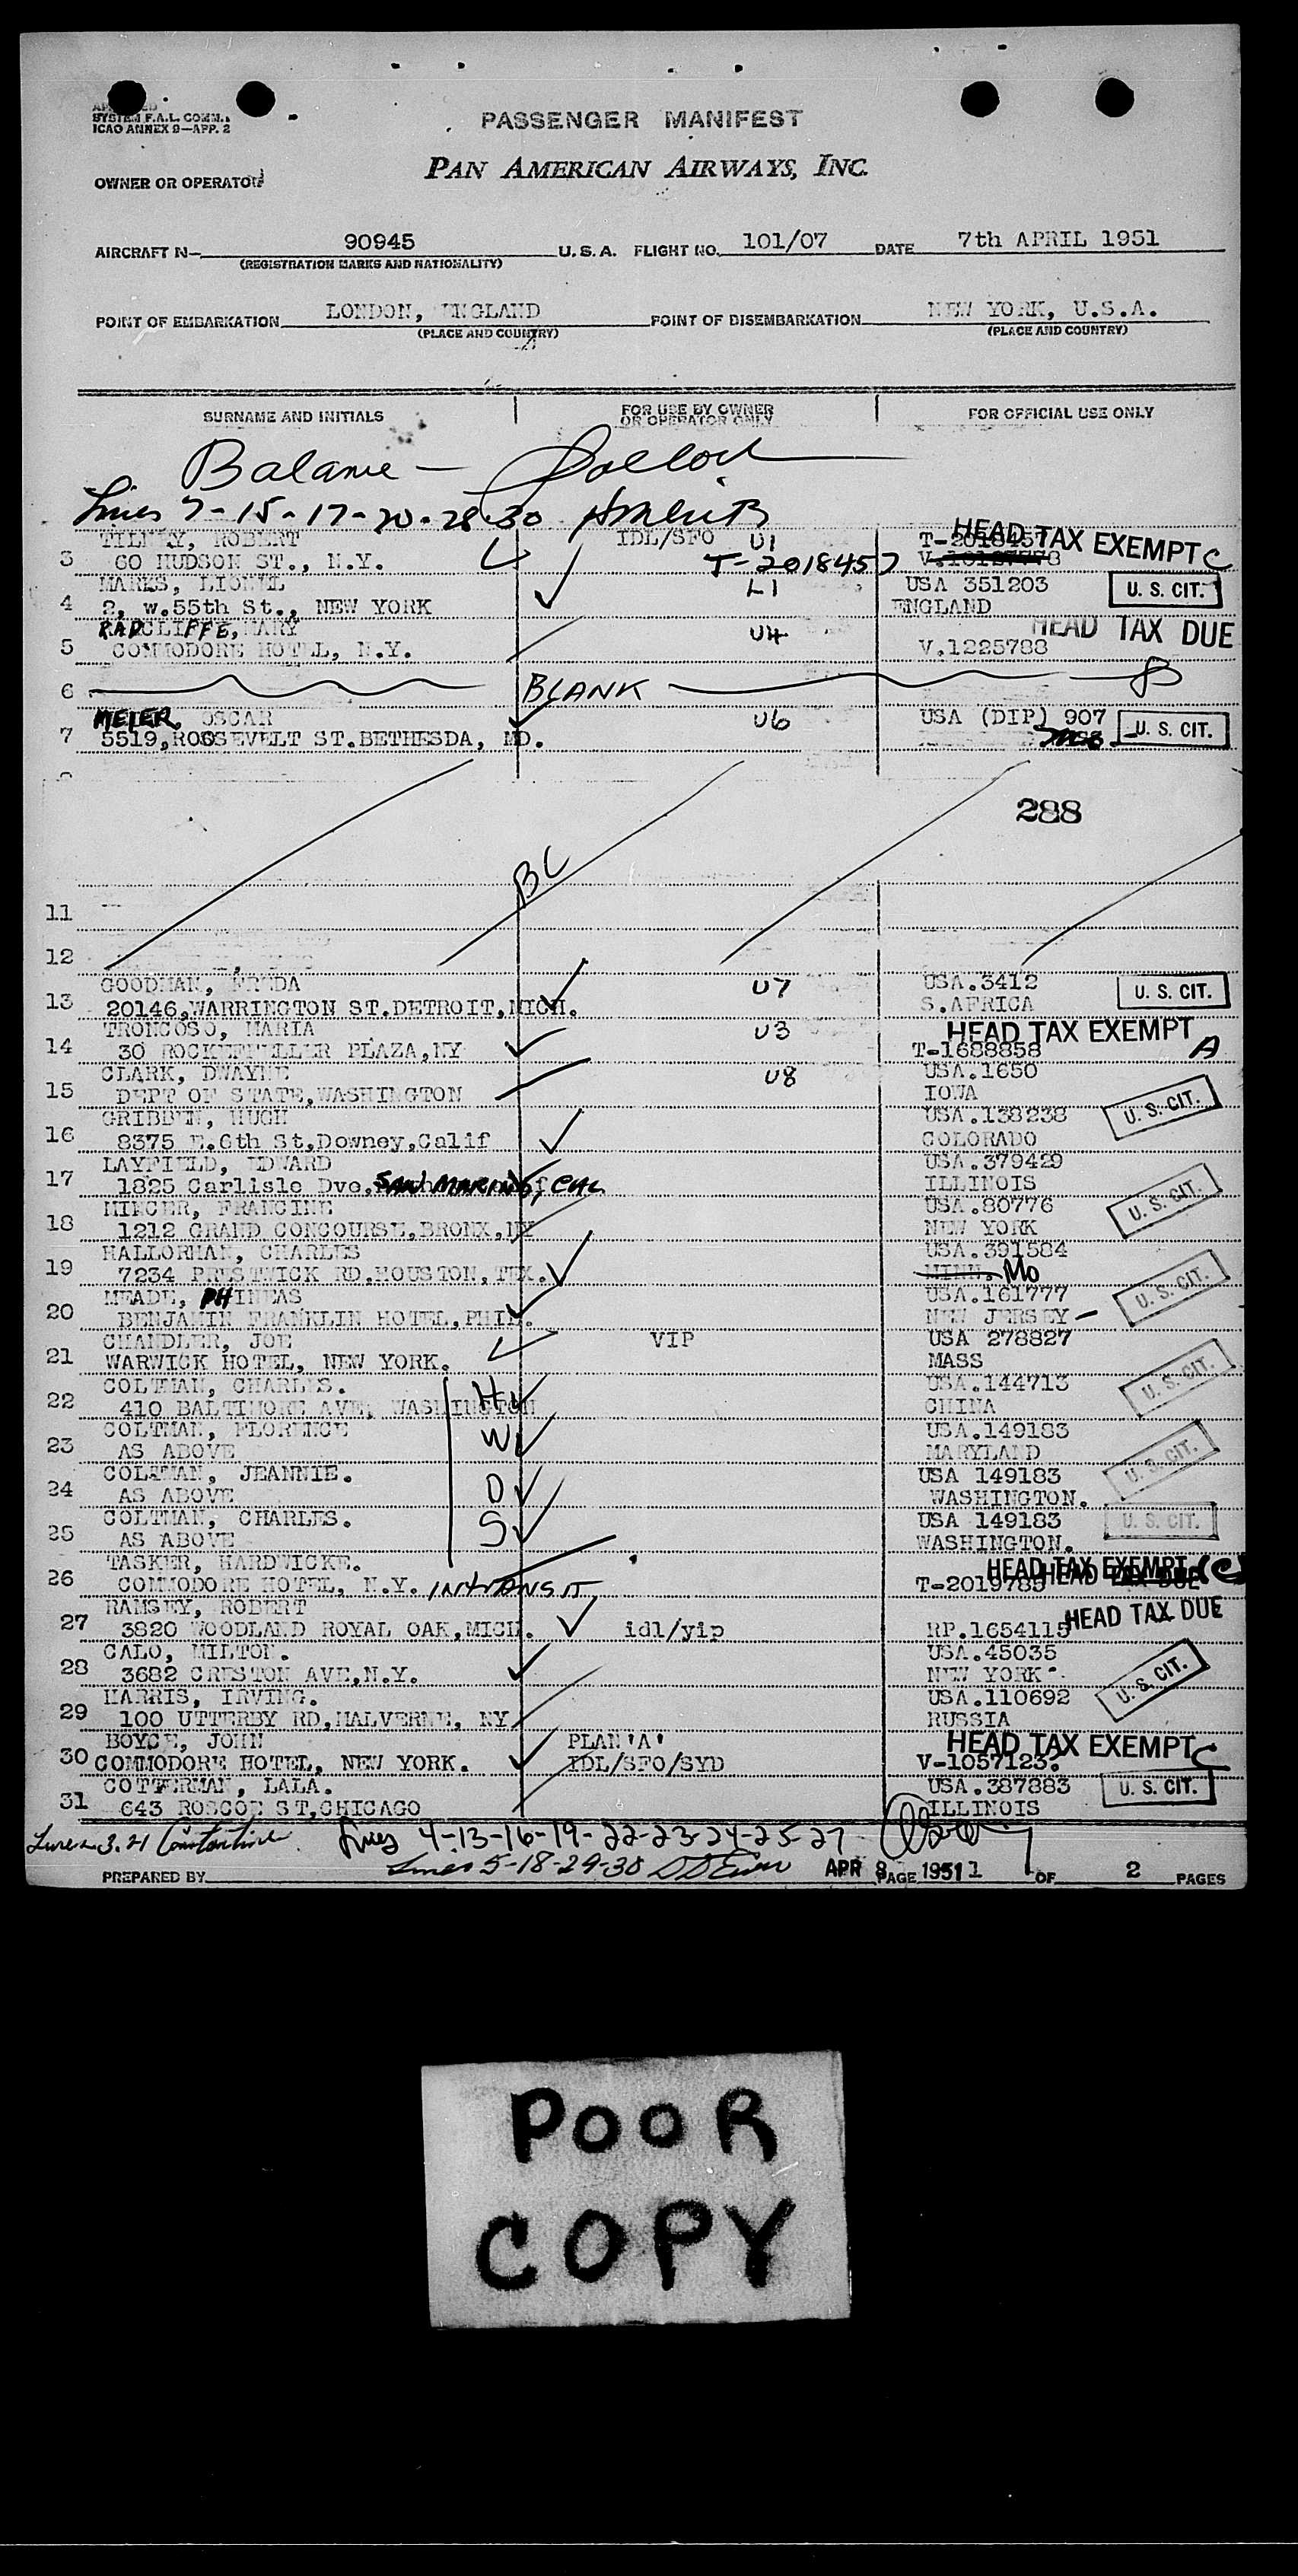 SYSTEM F.A.L. COMM.
ICAO ANNEX 9—APP. 2
PASSENGER MANIFEST
PAN AMERICAN AIRWAYS, INC.
OWNER OR OPERATOR
AIRCRAFT N— 90945 U.S.A. FLIGHT NO. 101/07 DATE 7th APRIL 1951
(REGISTRATION MARKS AND NATIONALITY)
POINT OF EMBARKATION LONDON, ENGLAND POINT OF DISEMBARKATION NEW YORK, U.S.A.
(PLACE AND COUNTRY) (PLACE AND COUNTRY)
SURNAME AND INITIALS FOR USE BY OWNER OR OPERATOR ONLY FOR OFFICIAL USE ONLY
Balance —
Lines 7-15-17-20-28-30
TILNEY, ROBERT IDL/SFO U1 T-2018457 HEAD TAX EXEMPT C
3 60 HUDSON ST., N.Y. T-2018457
MARKS, LIONEL L1 USA 351203 U. S. CIT.
4 2, w.55th St., NEW YORK ENGLAND
RADCLIFFE, MARY U4 HEAD TAX DUE
5 COMMODORE HOTEL, N.Y. V.1225788
6 BLANK
MEIER, OSCAR U6 USA (DIP) 907
7 5519,ROOSEVELT ST.BETHESDA, MD. U. S. CIT.
288
BL
11
12
GOODMAN, FREDA U7 USA.3412 U. S. CIT.
13 20146,WARRINGTON ST.DETROIT,MICH. S.AFRICA
TRONCOSO, MARIA U3 HEAD TAX EXEMPT A
14 30 ROCKEFELLER PLAZA,NY T-1688858
CLARK, DWAYNE U8 USA.1650
15 DEPT OF STATE,WASHINGTON IOWA U. S. CIT.
GRIBBEN, HUGH USA.138238
16 8375 E.6th St,Downey,Calif COLORADO
LAYFIELD, EDWARD USA.379429
17 1825 Carlisle Dve, SAN MARINO, CAL ILLINOIS U. S. CIT.
MINCER, FRANCINE USA.80776
18 1212 GRAND CONCOURSE,BRONX,NY NEW YORK
HALLORMAN, CHARLES USA.391584
19 7234 PRESTWICK RD.HOUSTON,TEX. MINN. Mo U. S. CIT.
MEADE, PHINEAS USA.161777
20 BENJAMIN FRANKLIN HOTEL,PHIL. NEW JERSEY
CHANDLER, JOE VIP USA 278827
21 WARWICK HOTEL, NEW YORK. MASS U. S. CIT.
COLTMAN, CHARLES. H USA.144713
22 410 BALTIMORE AVE, WASHINGTON CHINA
COLTMAN, FLORENCE W USA.149183
23 AS ABOVE MARYLAND U. S. CIT.
COLTMAN, JEANNIE. D USA 149183
24 AS ABOVE WASHINGTON.
COLTMAN, CHARLES. S USA 149183 U. S. CIT.
25 AS ABOVE WASHINGTON.
TASKER, HARDWICKE. HEAD TAX EXEMPT (C)
26 COMMODORE HOTEL, N.Y. INTRANSIT T-2019785 HEAD TAX DUE
RAMSEY, ROBERT HEAD TAX DUE
27 3820 WOODLAND ROYAL OAK,MICH. idl/yip RP.1654115
CALO, MILTON. USA.45035
28 3682 CRESTON AVE,N.Y. NEW YORK U. S. CIT.
HARRIS, IRVING. USA.110692
29 100 UTTERBY RD,MALVERNE, NY RUSSIA
BOYCE, JOHN PLAN'A' HEAD TAX EXEMPT C
30 COMMODORE HOTEL, NEW YORK. IDL/SFO/SYD V-1057123.
COTTERMAN, LALA. USA.387883 U. S. CIT.
31 643 ROSCOE ST,CHICAGO ILLINOIS
Lines 3.21 Constantine Lines 4-13-16-19-22-23-24-25-27
Lines 5-18-29-30
PREPARED BY APR 8 1951 PAGE 1 OF 2 PAGES
POOR
COPY